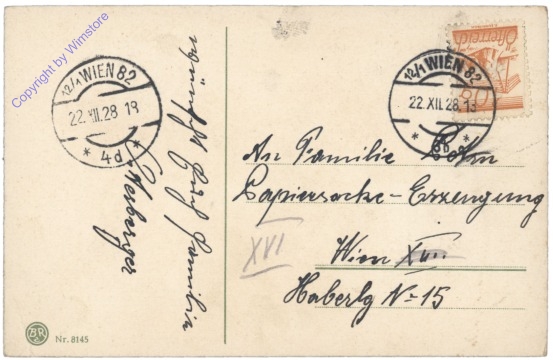 Copyright by Wimstore
12/1 WIEN 82
22.XII.28 18
* 4d *
wünscht Fam. Familie
Österreich
12/1 WIEN 82
22.XII.28.18
An Familie
Papiersäcke-Erzeugung
XVI
Wien XVII
Haberlg No 15
BR
Nr. 8145